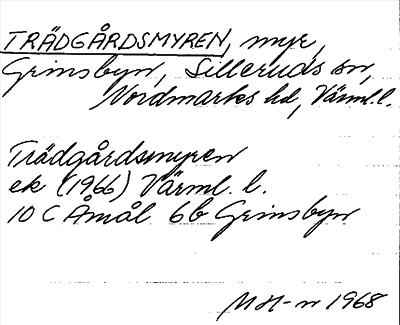 TRÄDGÅRDSMYREN, myr,
Grinsbyn, Silleruds sn,
Nordmarks hd, Värml. l.
Trädgårdsmyren
ek (1966) Värml. l.
10 C Åmål 6b Grinsbyn
1968